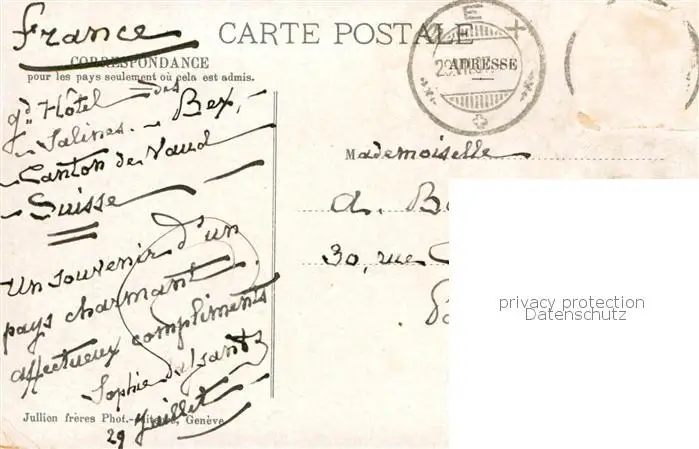 France
CARTE POSTALE
CORRESPONDANCE
pour les pays seulement où cela est admis.
ADRESSE
gd Hôtel des
Salines. - Bex, -
Canton de Vaud
Suisse
Un souvenir d'un
pays charmant.
affectueux compliments
Sophie
29 Juillet
Jullion frères Phot.-Editeurs, Genève
Mademoiselle
A. B
30, rue
privacy protection
Datenschutz